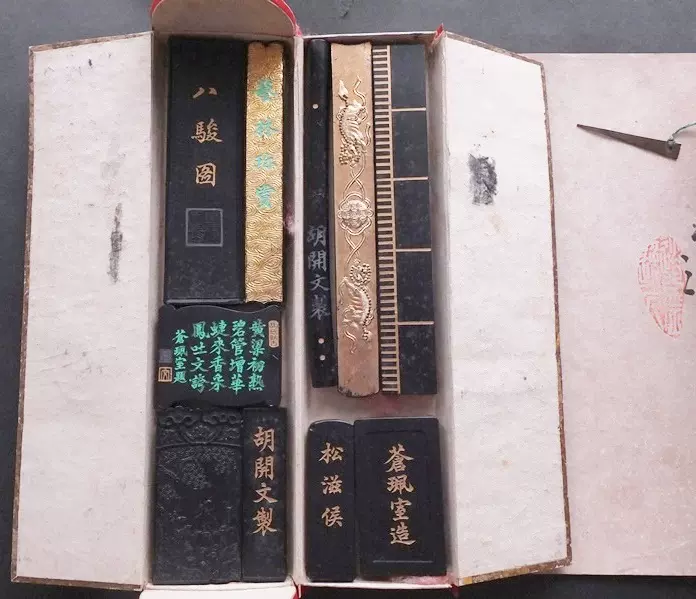 八駿圖
藝林珍賞
黃粱初熟
碧管增華
蜨來香采
鳳吐文誇
蒼珮室題
胡開文製
胡開文製
松滋侯
蒼珮室造